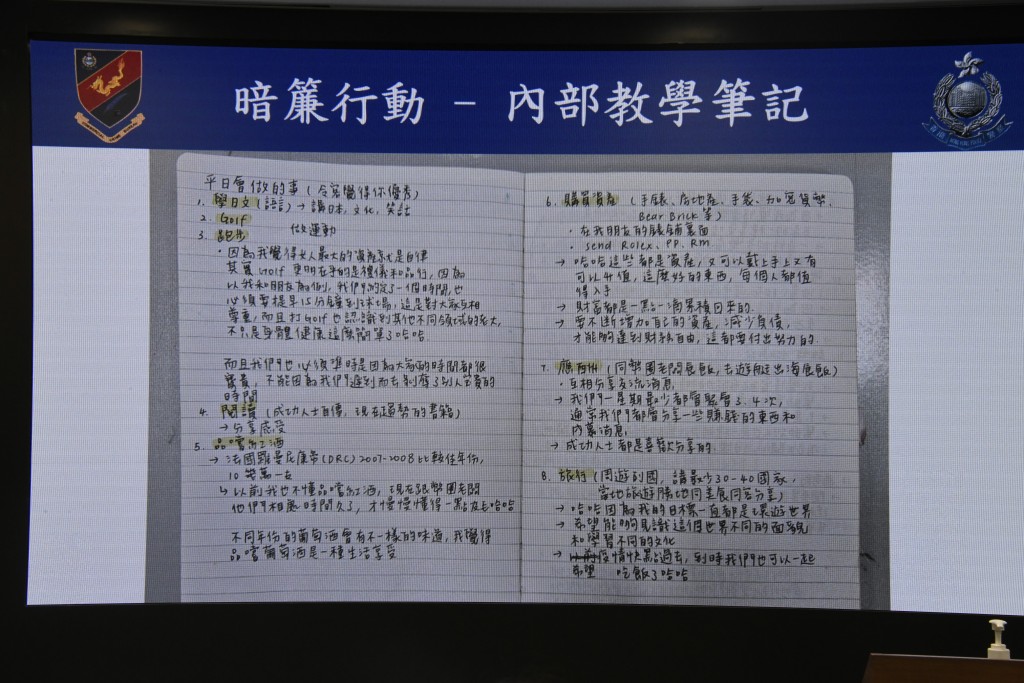 暗簾行動 - 內部教學筆記
平日會做的事 (令客覺得你優秀)
1. 學日文 (語言) → 講日本, 文化, 笑話
2. Golf
做運動
3. 跑步
· 因為我覺得女人最大的資產就是自律
其實 Golf 更明在乎的是禮儀和品行, 因為
以我和朋友為例, 我們約定了一個時間, 也
必須要提早15分鐘到球場, 這是對大家互相
尊重, 而且打Golf也認識到其他不同領域的老大,
不只是身體健康這麼簡單了哈哈.
而且我們也必須準時是因為大家的時間都很
寶貴, 不能因為我們遲到而去剝奪了別人寶貴的
時間
4. 閱讀 (成功人士自傳, 現在運勢的書籍)
→ 分享感受
5. 品嚐紅酒
→ 法國羅曼尼康帝(DRC) 2007-2008比較佳年份,
10幾萬一支
↳ 以前我也不懂品嚐紅酒, 現在跟幣圈老闆
他們相處時間久了, 才慢慢懂得一點皮毛哈哈
不同年份的葡萄酒會有不一樣的味道, 我覺得
品嚐葡萄酒是一種生活享受
6. 購買資產 (手錶、房地產、手袋、加密貨幣,
Bear Brick 等)
· 在我朋友的錶舖裏面
· send Rolex、PP、Rm
→ 哈哈這些都是資產, 又可以戴上手上又有
可以升值, 這麼好的東西, 每個人都值
得入手
→ 財富都是一點一滴累積回來的.
→ 要不斷增加自己的資產, 減少負債,
才能夠達到財務自由, 這都要付出努力的
7. 應酬 (同幣圈老闆食飯, 去遊艇出海食飯)
· 互相分享交流消息
→ 我們一星期最少都會聚會3.4次,
通常我們都會分享一些賺錢的東西和
內幕消息.
→ 成功人士都是喜歡分享的.
8. 旅行 (周遊列國, 講最少30-40國家,
當地旅遊勝地同美食同客分享)
→ 哈哈因為我的目標一直都是環遊世界
→ 希望能夠見識這個世界不同的面貌
和學習不同的文化
→ 疫情快點過去, 到時我們也可以一起
希望 吃飯了哈哈